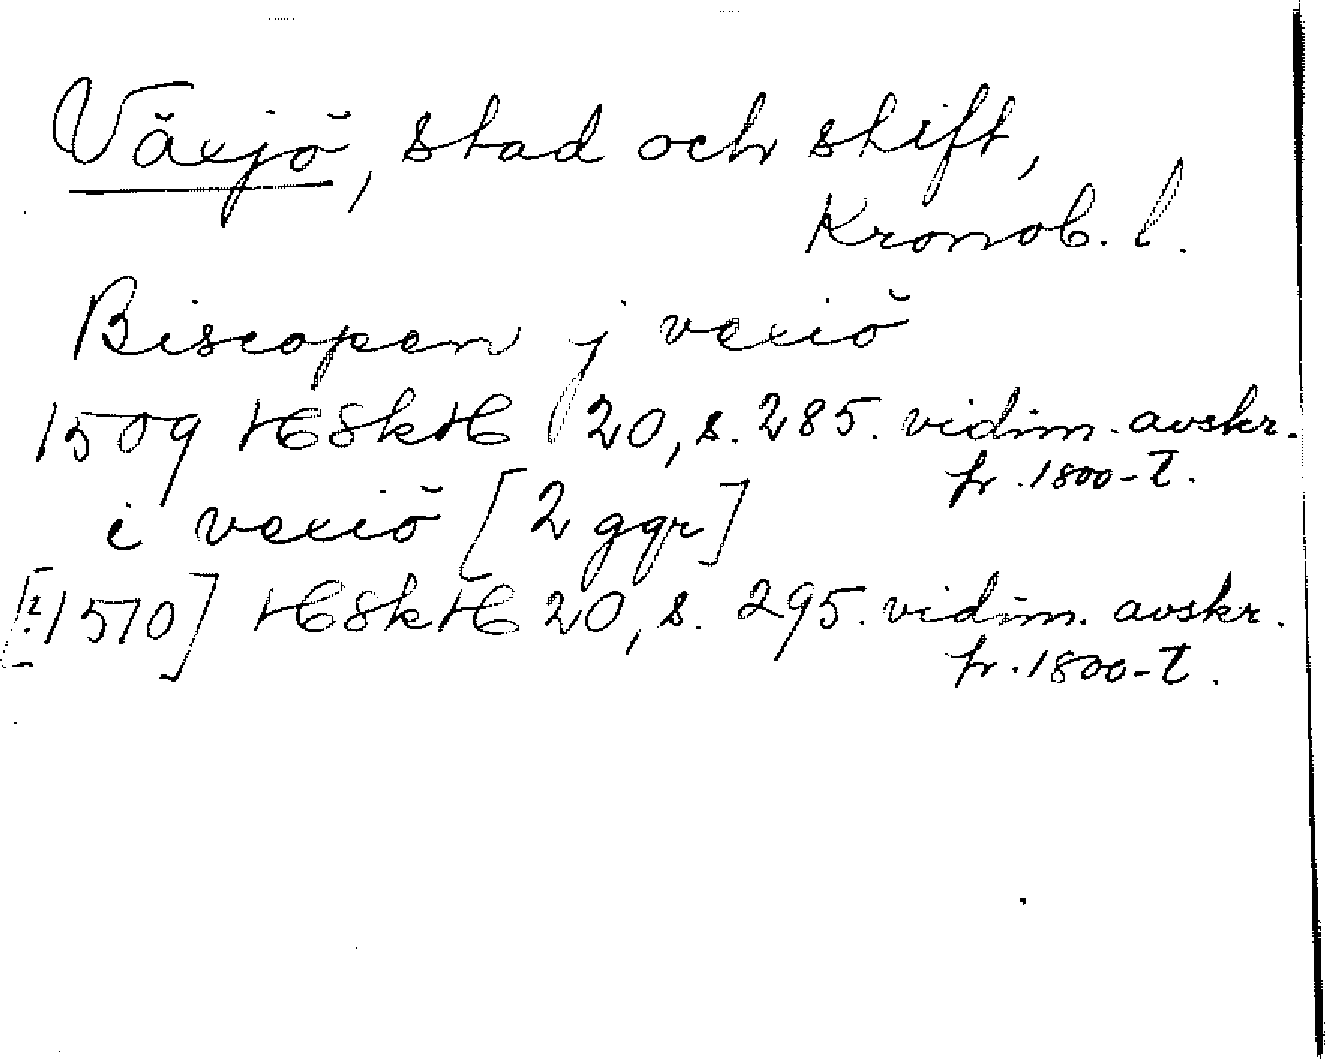 Växjö, stad och stift,
Kronob. l.
Biscopen j vexiö
1509 HSkH 20, s. 285. vidim. avskr.
fr. 1800-t.
i vexiö [2 ggr]
[?1510] HSkH 20, s. 295. vidim. avskr.
fr. 1800-t.